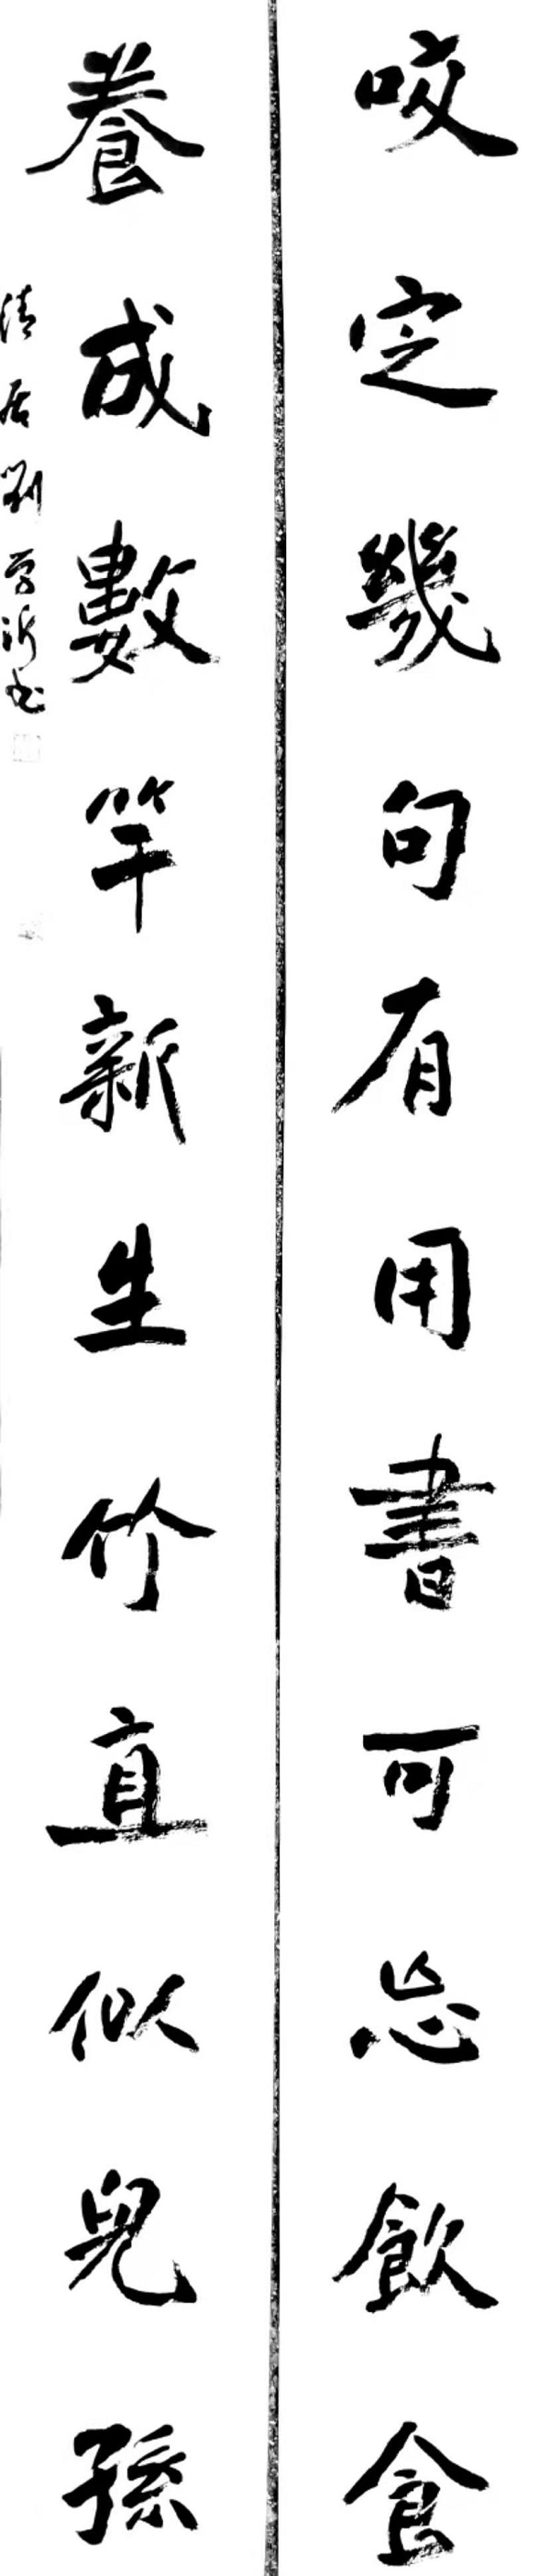 咬定幾句有用書可忘飲食
養成數竿新生竹直似兒孫
清居劉學沂书